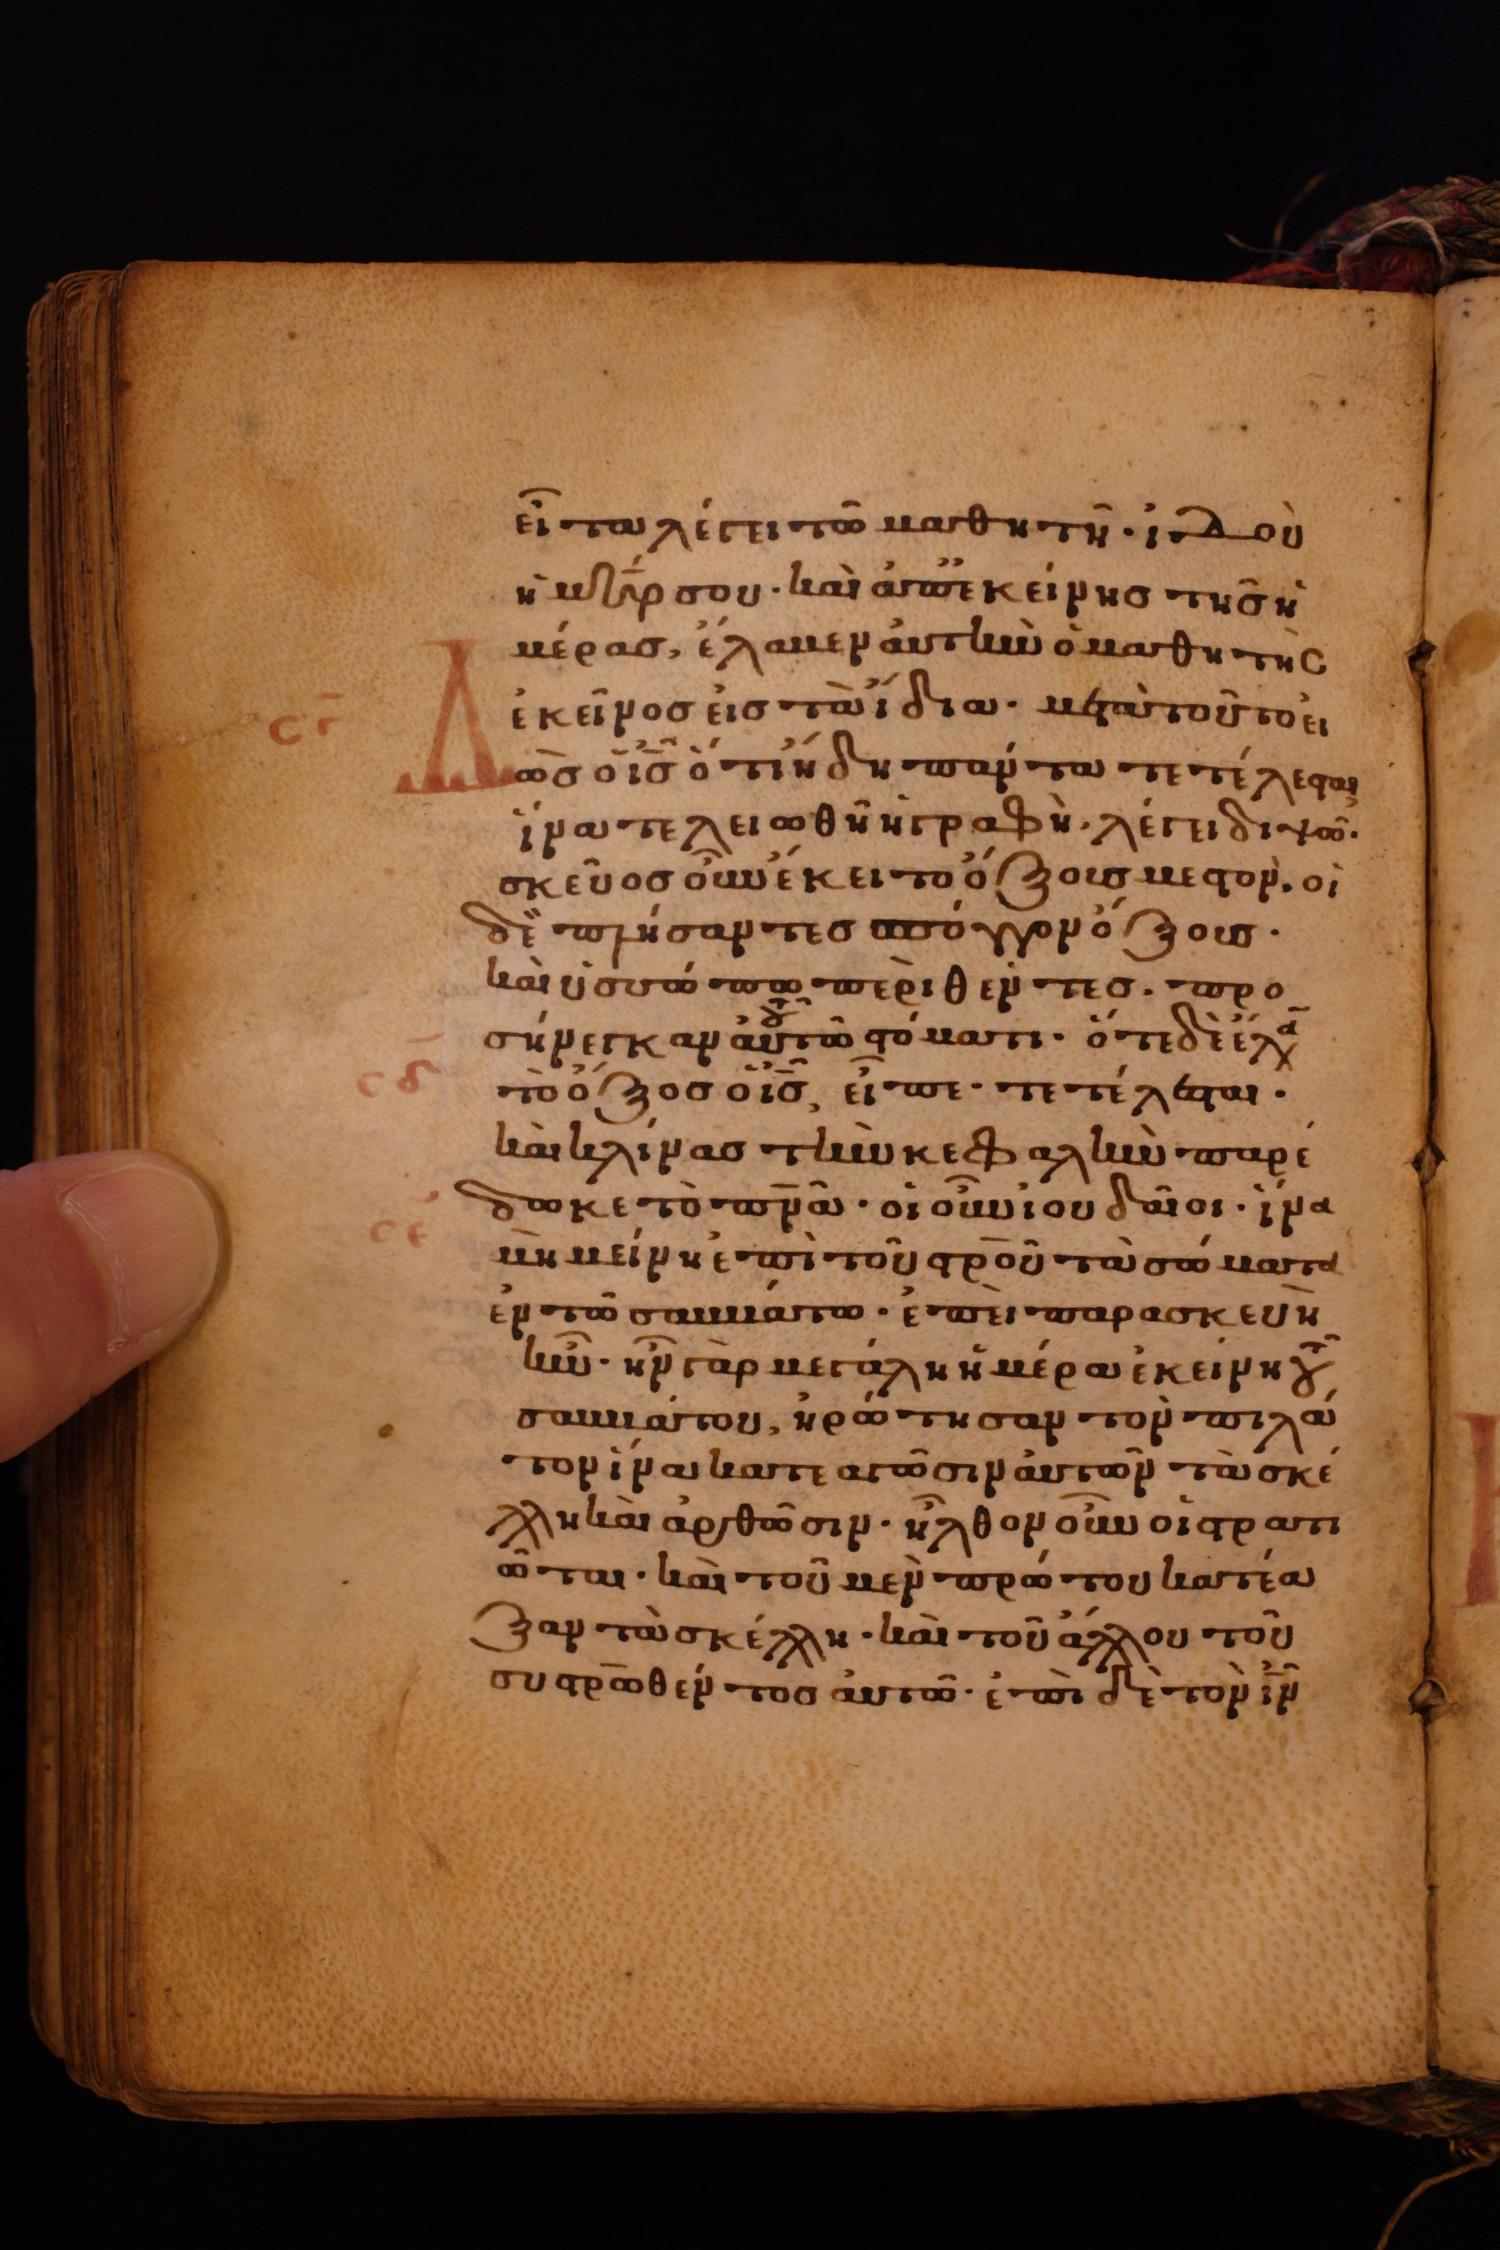 εἶτα λέγει τῶ μαθητῆ· ἰδοὺ
ἡ μη̅ρ σου· καὶ ἀπ' ἐκείνησ τῆσ ἡ
μέρασ, ἔλαβεν ἀυτὴν ὁ μαθητὴσ
σγ̅ ἐκεῖνοσ εἰσ τὰ ἴδια· μετὰ τοῦτο εἰ
Δὼσ ὁ ἰ̅σ̅ ὅτι ἤδη πάντα τετέλεσται
ἵνα τελειωθῆ ἡ γραφὴ· λέγει διψῶ·
σκεῦοσ οὖν ἔκειτο ὄξουσ μεστον· οἱ
δὲ πλήσαντεσ σπόγγον ὄξουσ·
καὶ ὑσσώπω περιθέντεσ· προ
σήνεγκαν ἀυτοῦ τῶ στόματι· ὅτε δὲ ἔλα
σδ̅ τὸ ὄξοσ ὁ ἰ̅σ̅, εἶπε· τετέλεσται·
καὶ κλίνασ τὴν κεφαλὴν παρέ
σε̅ δωκε τὸ πν̅α· οἱ οὖν ἰουδαῖοι· ἵνα
μὴ μείνη ἐπὶ τοῦ στρο̅ῦ τὰ σώματα
ἐν τῶ σαββάτω· ἐπεὶ παρασκευὴ
ἦν· ἦν γὰρ μεγάλη ἡ μέρα ἐκείνη τοῦ
σαββάτου, ἠρώτησαν τὸν πιλά
τον ἵνα κατεαγῶσιν ἀυτῶν τὰ σκέ
λλη καὶ ἀρθῶσιν· ἦλθον οὖν οἱ στρατι
ῶται· καὶ τοῦ μὲν πρώτου κατέα
ξαν τὰ σκέλλη· καὶ τοῦ ἄλλου τοῦ
συστρω̅θέντοσ ἀυτῶ· ἐπὶ δὲ τὸν ἰ̅ν̅